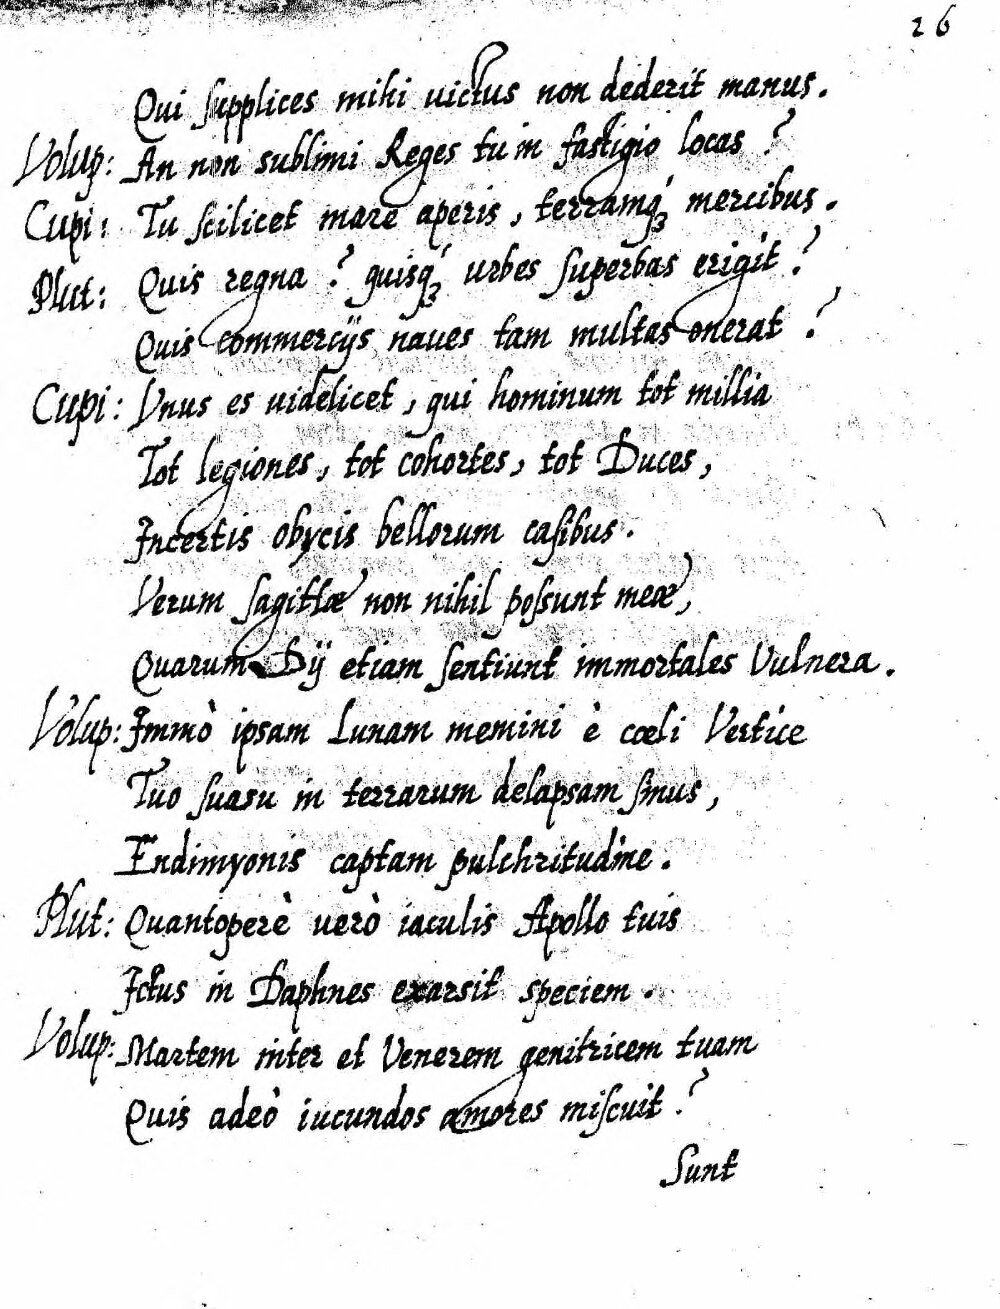 26
Qui supplices mihi uictus non dederit manus.
Volup: An non sublimi Reges tu in fastigio locas?
Cupi: Tu scilicet mare aperis, terramq́ꝫ mercibus.
Plut: Quis regna? quisq́ꝫ urbes superbas erigit?
Quis commercijs naues tam multas onerat?
Cupi: Vnus es uidelicet, qui hominum tot millia
Tot legiones, tot cohortes, tot Duces,
Incertis obycis bellorum casibus.
Verum sagittæ non nihil possunt meæ,
Quarum Dij etiam sentiunt immortales Vulnera.
Volup: Immò ipsam Lunam memini è cœli Vertice
Tuo suasu in terrarum delapsam sinus,
Endimyonis captam pulchritudine.
Plut: Quantoperè uerò iaculis Apollo tuis
Ictus in Daphnes exarsit speciem.
Volup: Martem inter et Venerem genitricem tuam
Quis adeò iucundos amores miscuit?
Sunt